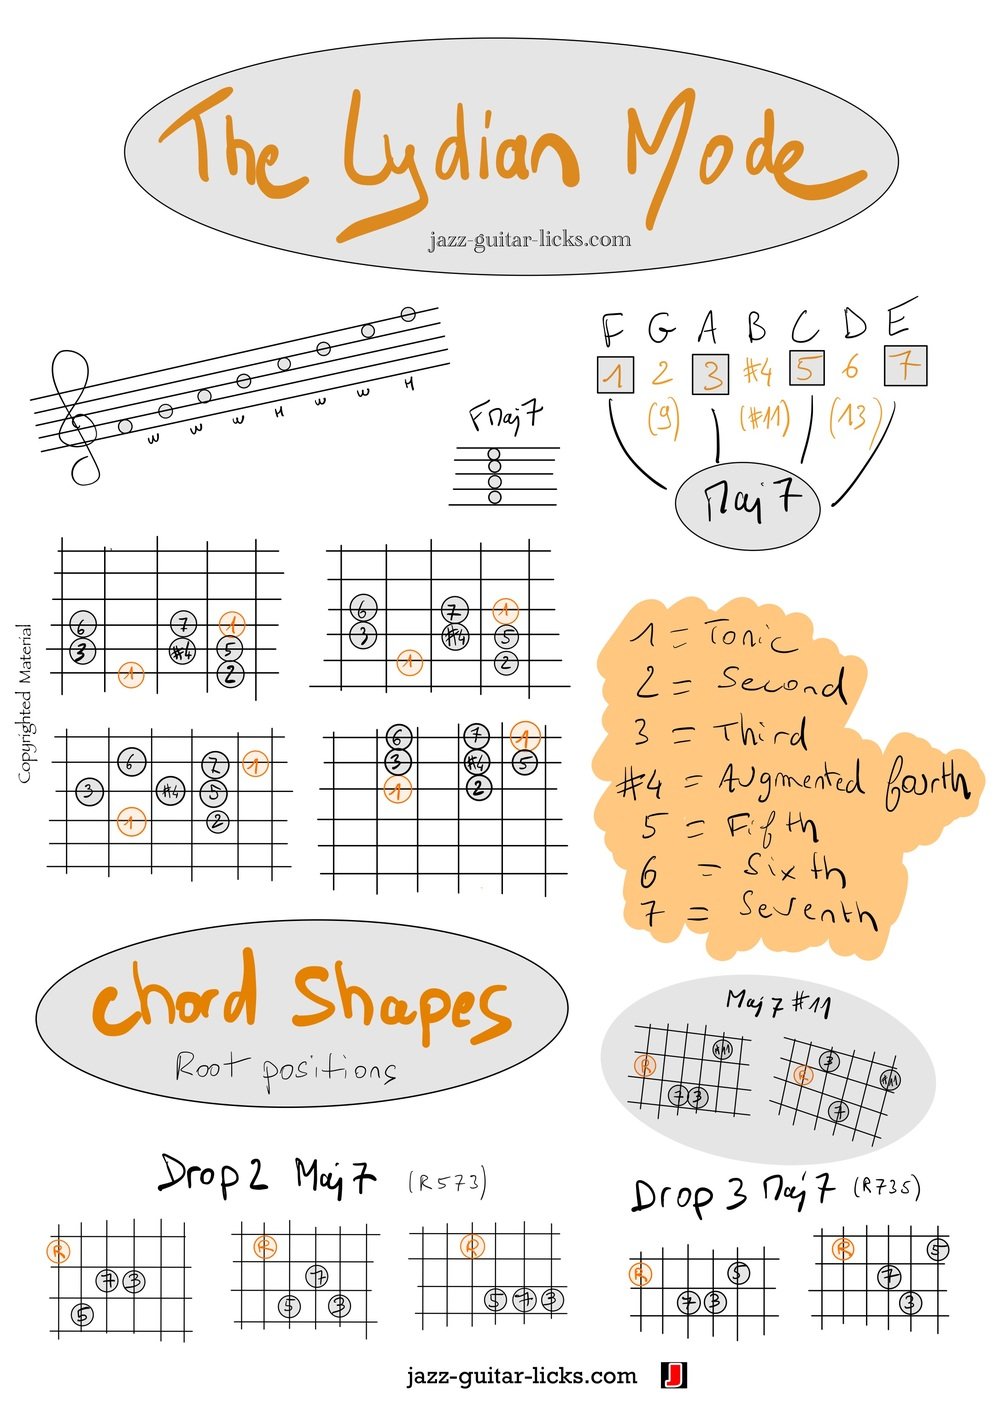 The Lydian Mode
jazz-guitar-licks.com
F G A B C D E
1 2 3 #4 5 6 7
(9) (#11) (13)
Maj 7
W W W H W W H
FMaj7
Copyrighted Material
6 7 1
3 #4 5
1 2
6 7 1
3 #4 5
1 2
6 7 1
3 #4 5
1 2
6 7 1
3 #4 5
1 2
1 = Tonic
2 = Second
3 = Third
#4 = Augmented fourth
5 = Fifth
6 = Sixth
7 = Seventh
Chord Shapes
Root positions
Maj 7 #11
R #11
7 3
R 3 #11
7
Drop 2 Maj 7 (R573)
R
7 3
5
R
7
5 3
R
5 7 3
Drop 3 Maj 7 (R735)
R 5
7 3
R 5
7
3
jazz-guitar-licks.com J